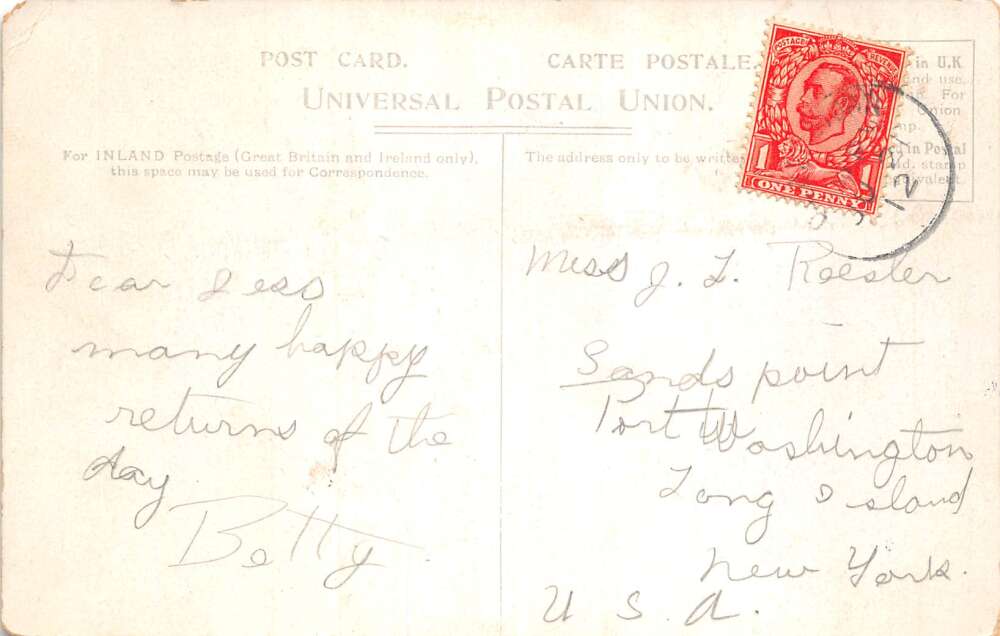 POST CARD.
CARTE POSTALE.
UNIVERSAL POSTAL UNION.
For INLAND Postage (Great Britain and Ireland only),
this space may be used for Correspondence.
The address only to be written
in U.K
and use.
For
Union
in Postal
stamp
equivalent.
POSTAGE REVENUE
1
ONE PENNY
12
Dear Jess
many happy
returns of the
day
Betty
Miss J. L. Roesler
Sands point
Port Washington
Long Island
New York.
U S A.